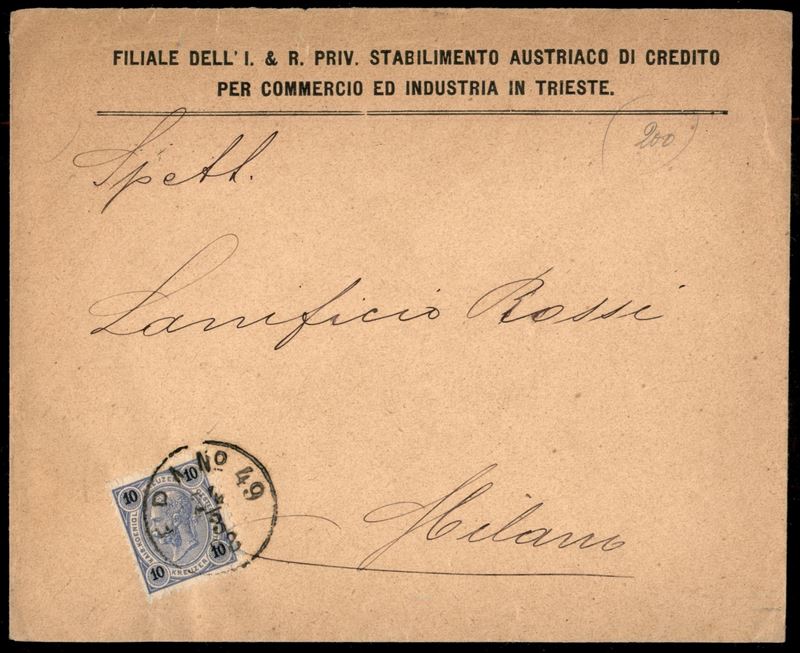 FILIALE DELL' I. & R. PRIV. STABILIMENTO AUSTRIACO DI CREDITO
PER COMMERCIO ED INDUSTRIA IN TRIESTE.
(200)
Spett.
Lanificio Rossi
Milano
No 49
10 KREUZER 10
KAIS. KOENIGL.
10 KREUZER 10